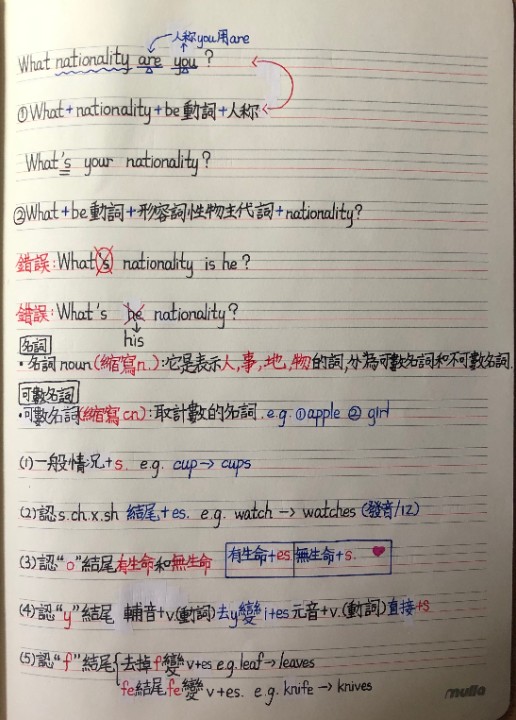 人称you用are
What nationality are you?
①What+nationality+be動詞+人称
What's your nationality?
②What+be動詞+形容詞性物主代詞+nationality?
錯誤:What's nationality is he?
錯誤:What's he nationality?
his
名詞
·名詞noun(縮寫n.):它是表示人,事,地,物的詞,分為可數名詞和不可數名詞.
可數名詞
·可數名詞(縮寫cn):取計數的名詞.e.g.①apple ② girl
(1)一般情況+s. e.g. cup→cups
(2)認s.ch.x.sh 結尾+es. e.g. watch→watches (發音/IZ)
(3)認"o"結尾有生命和無生命 有生命+es 無生命+s.
(4)認"y"結尾 輔音+v.(動詞)去y變i+es元音+v.(動詞)直接+s
(5)認"f"結尾 去掉f變v+es e.g.leaf→leaves
fe結尾fe變v+es. e.g. knife→knives
mulla